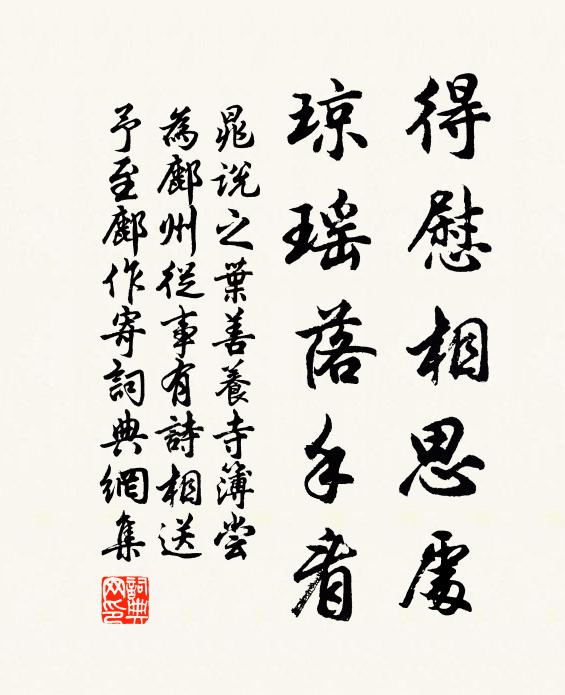 得慰相思處
琼瑶落手看
晁說之葉善養寺簿嘗
為鄜州從事有詩相送
予至鄜作寄詞典網集
詞典網印